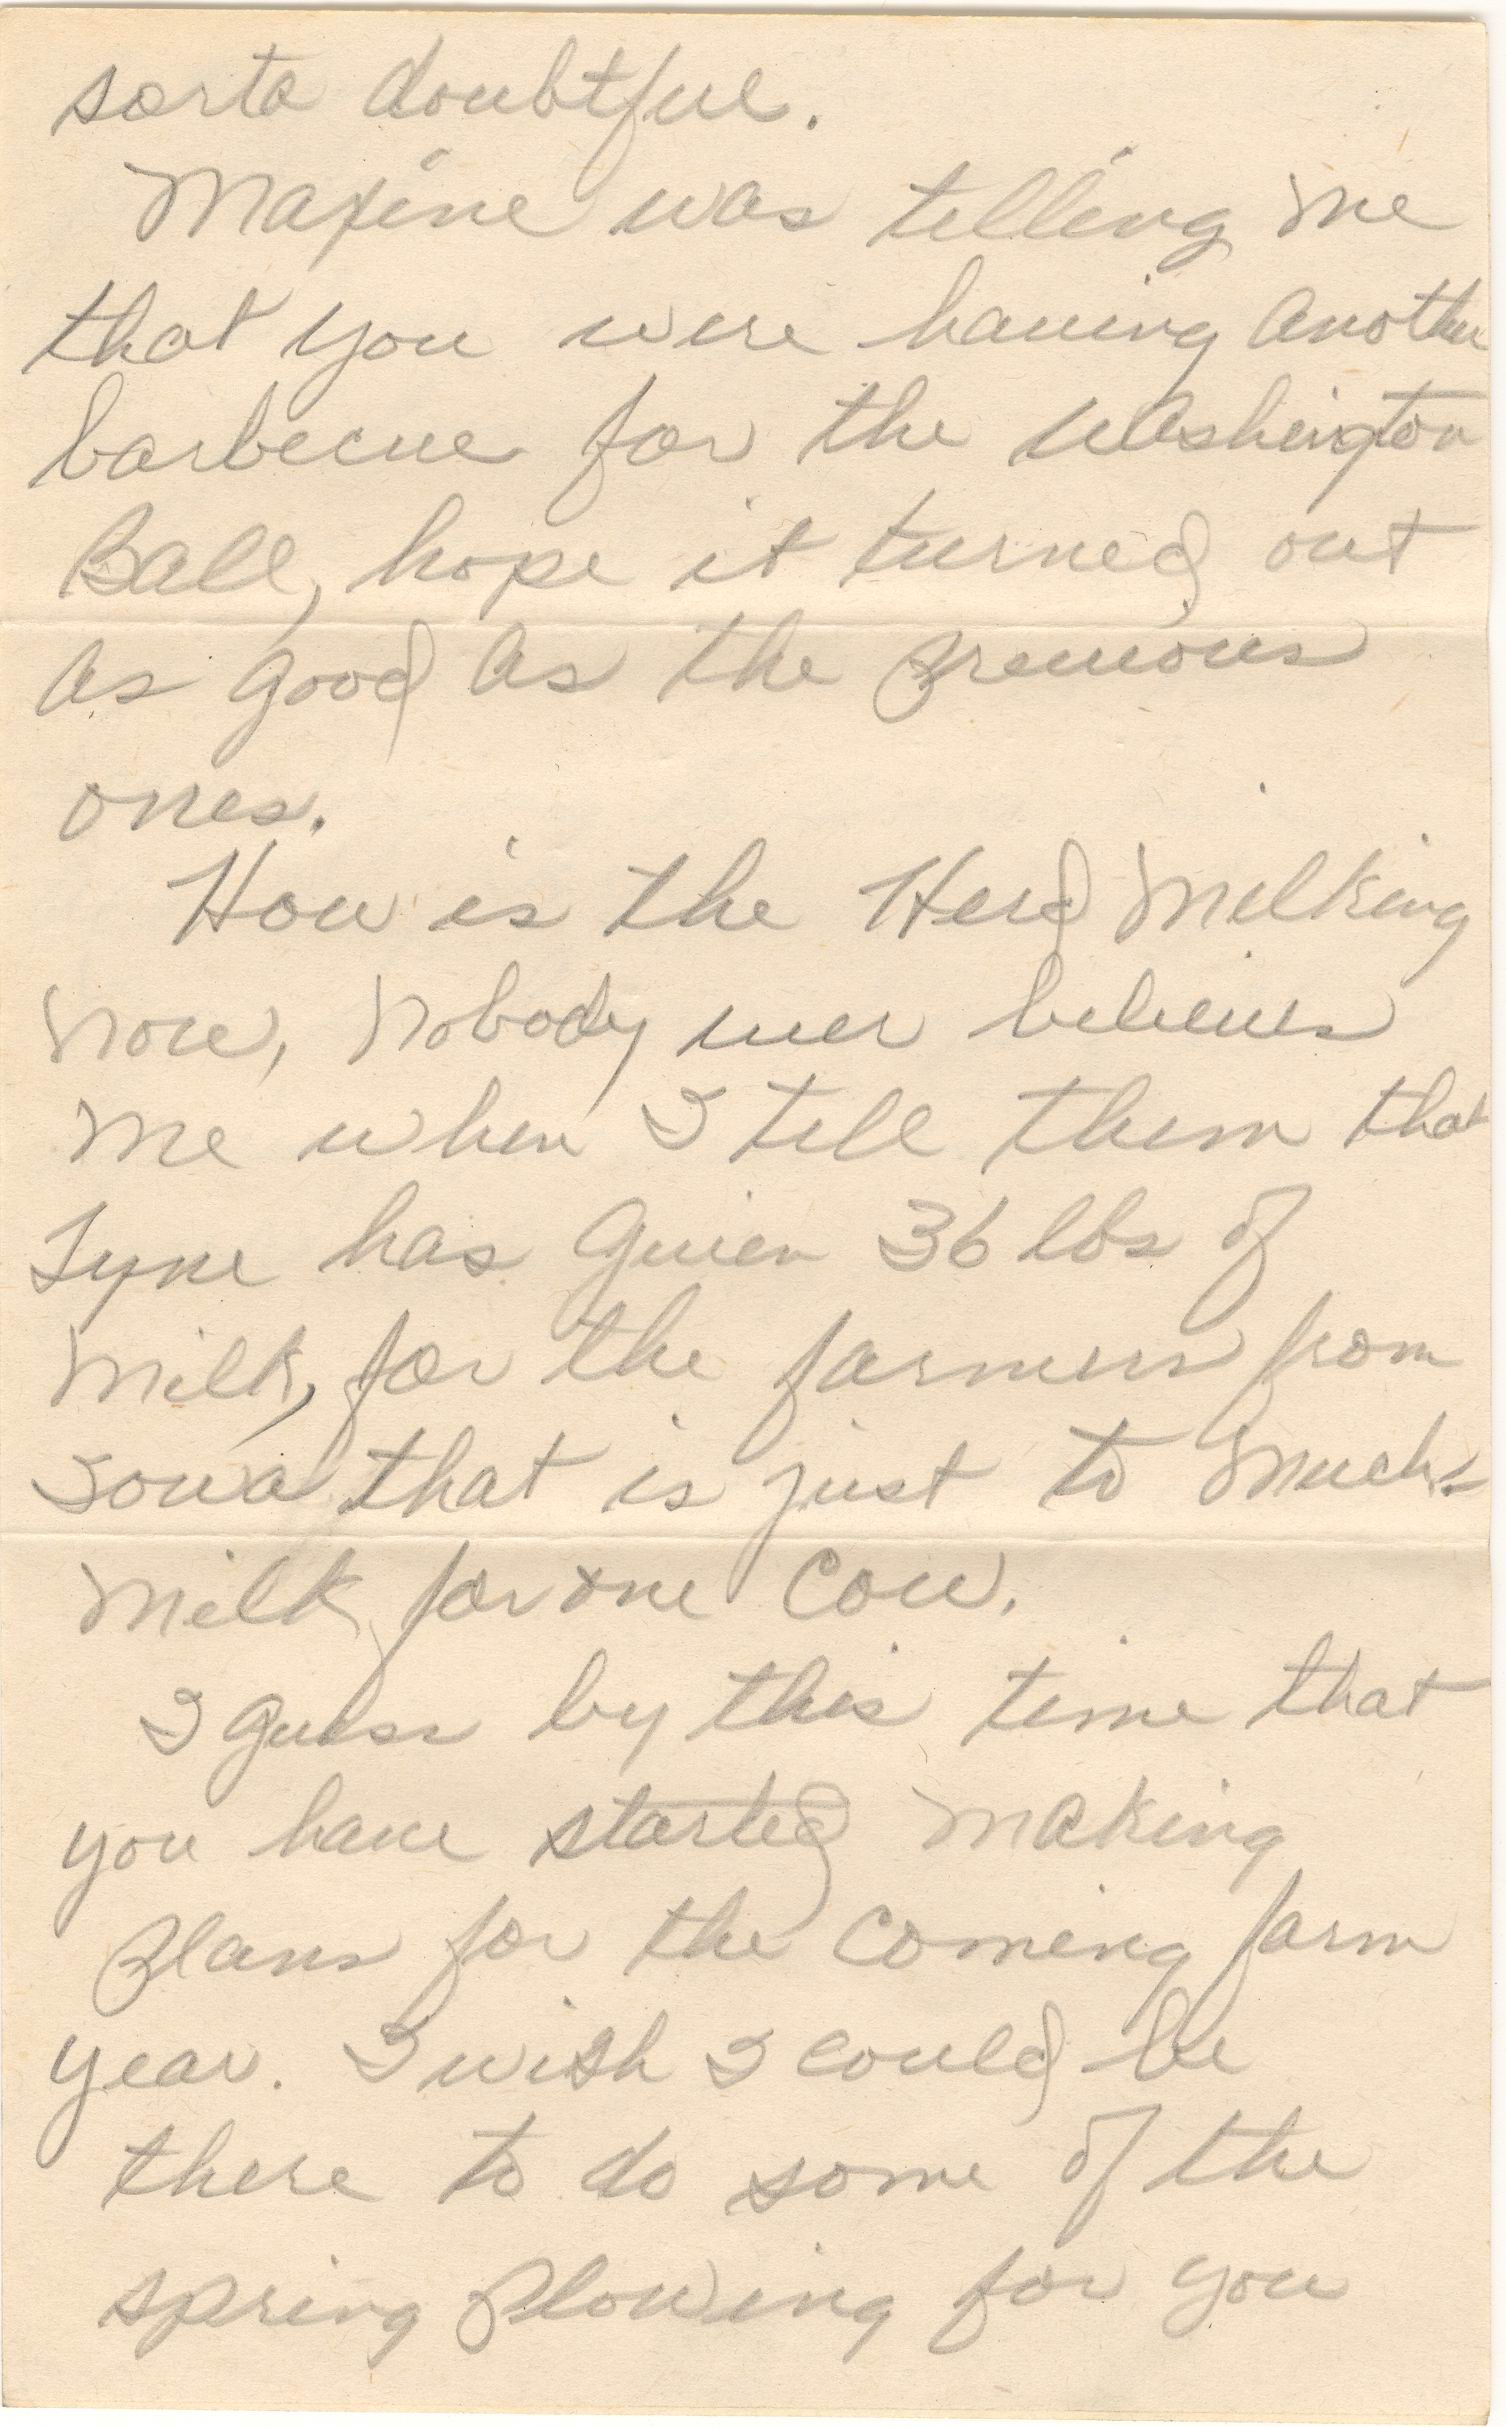 sorta doubtful.
Maxine was telling me
that you were having another
barbecue for the Washington
Ball, hope it turned out
as good as the previous
ones.
How is the Herd milking
now, nobody ever believes
me when I tell them that
Lyne has given 36 lbs of
milk, for the farmers from
Iowa that is just to much
milk for one cow.
I guess by this time that
you have started making
plans for the coming farm
year. I wish I could be
there to do some of the
spring plowing for you